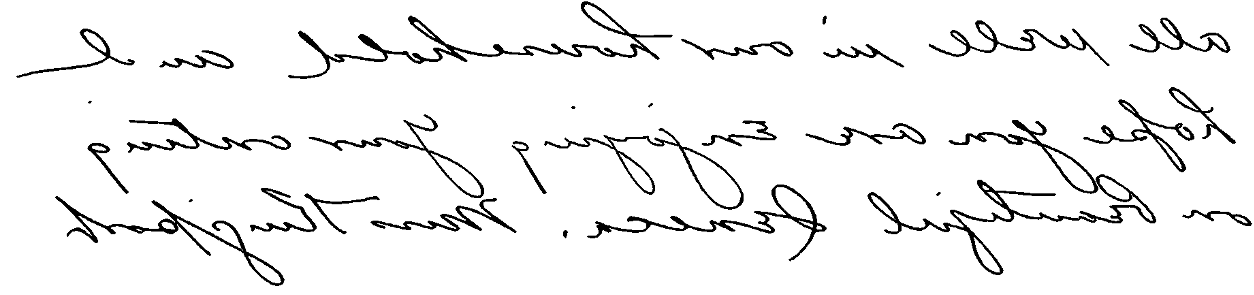 all well in our household and I
hope you are enjoying your outing
on beautiful Seneca. Miss Kingsport